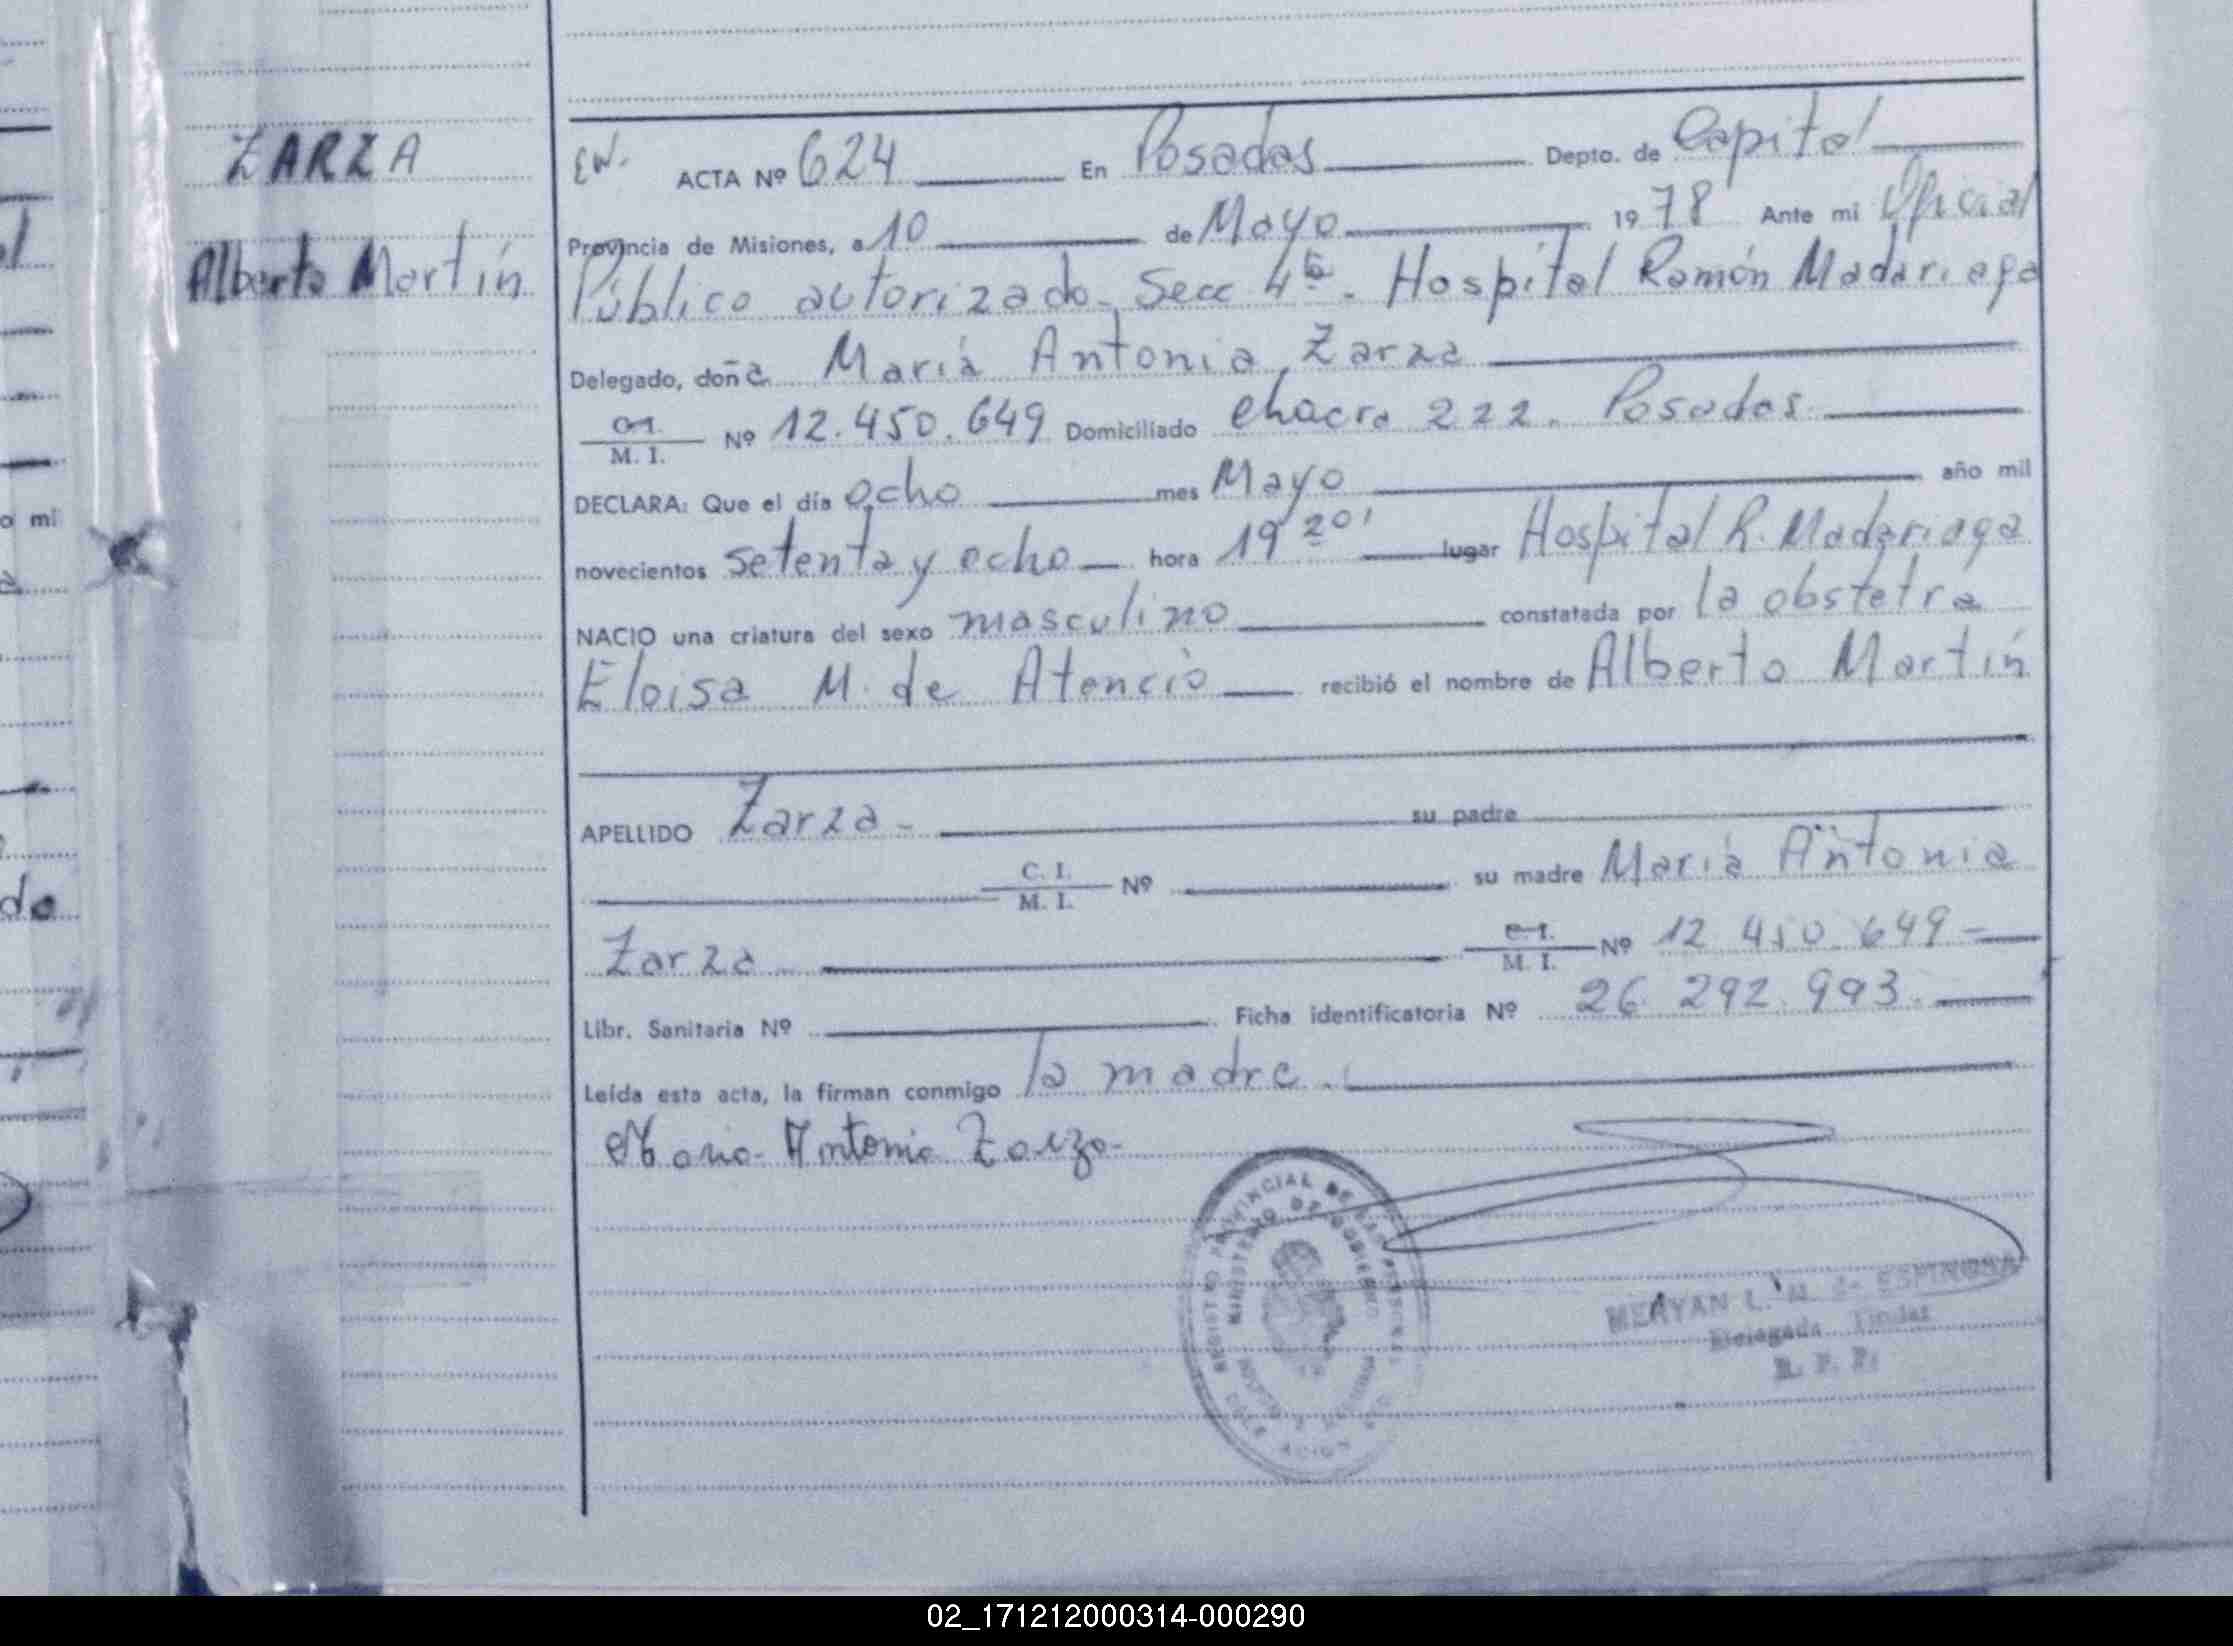 ZARZA
Alberto Martín
EN. ACTA Nº 624 En Posadas Depto. de Capital
Provincia de Misiones, a 10 de Mayo 1978 Ante mi Oficial
Público autorizado Secc 4ta. Hospital Ramón Madariaga
Delegado, doña María Antonia Zarza
C.I.
M. I. Nº 12.450.649 Domiciliado chacra 222. Posadas
DECLARA: Que el día ocho mes Mayo año mil
novecientos setenta y ocho hora 19 20' lugar Hospital R. Madariaga
NACIO una criatura del sexo masculino constatada por la obstetra
Eloisa M. de Atencio recibió el nombre de Alberto Martín
APELLIDO Zarza - su padre
C. I.
M. I. Nº su madre María Antonia
Zarza
C. I.
M. I. Nº 12 450. 649 -
Libr. Sanitaria Nº Ficha identificatoria Nº 26 292. 993.
Leída esta acta, la firman conmigo la madre.
Maria Antonia Zarza
REGISTRO PROVINCIAL DE LAS PERSONAS
MINISTERIO DE GOBIERNO
MERYAN L. M. de ESPINOSA
Delegada Titular
R. P. P.
o mi
do
02_171212000314-000290